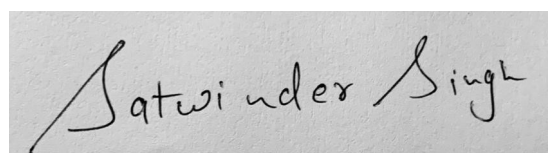 Satwinder Singh